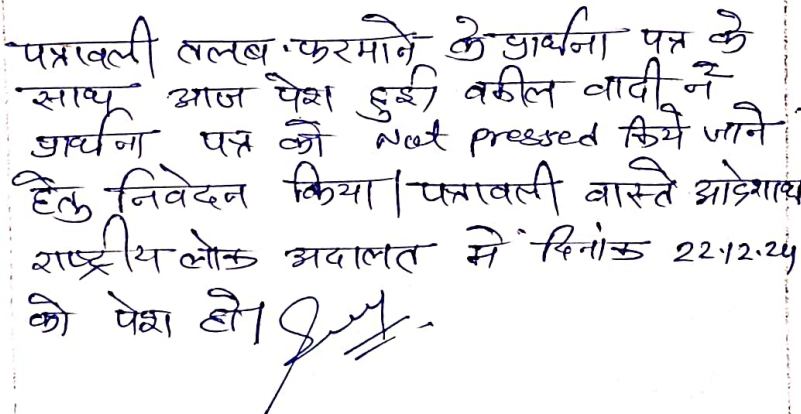 पत्रावली तलब फरमाने के प्रार्थना पत्र के
साथ आज पेश हुई। वकील वादी ने
प्रार्थना पत्र को Not pressed किये जाने
हेतु निवेदन किया। पत्रावली वास्ते आदेशार्थ
राष्ट्रीय लोक अदालत में दिनांक 22.12.24
को पेश हो।